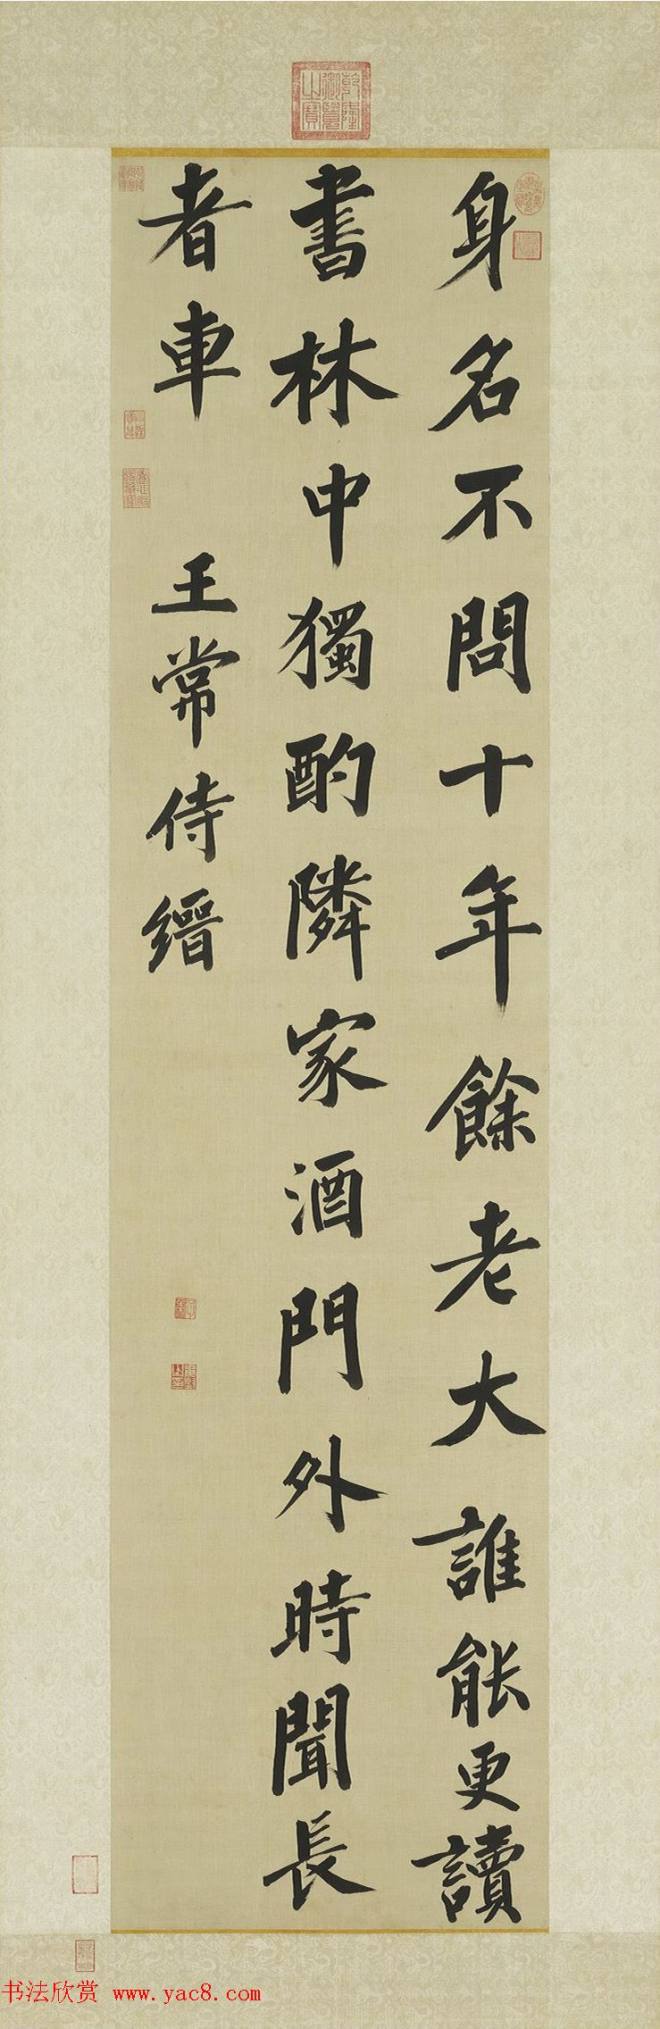 身名不問十年餘老大誰能更讀
書林中獨酌隣家酒門外時聞長
者車
王常侍縉
乾隆御覽之寶
书法欣赏 www.yac8.com